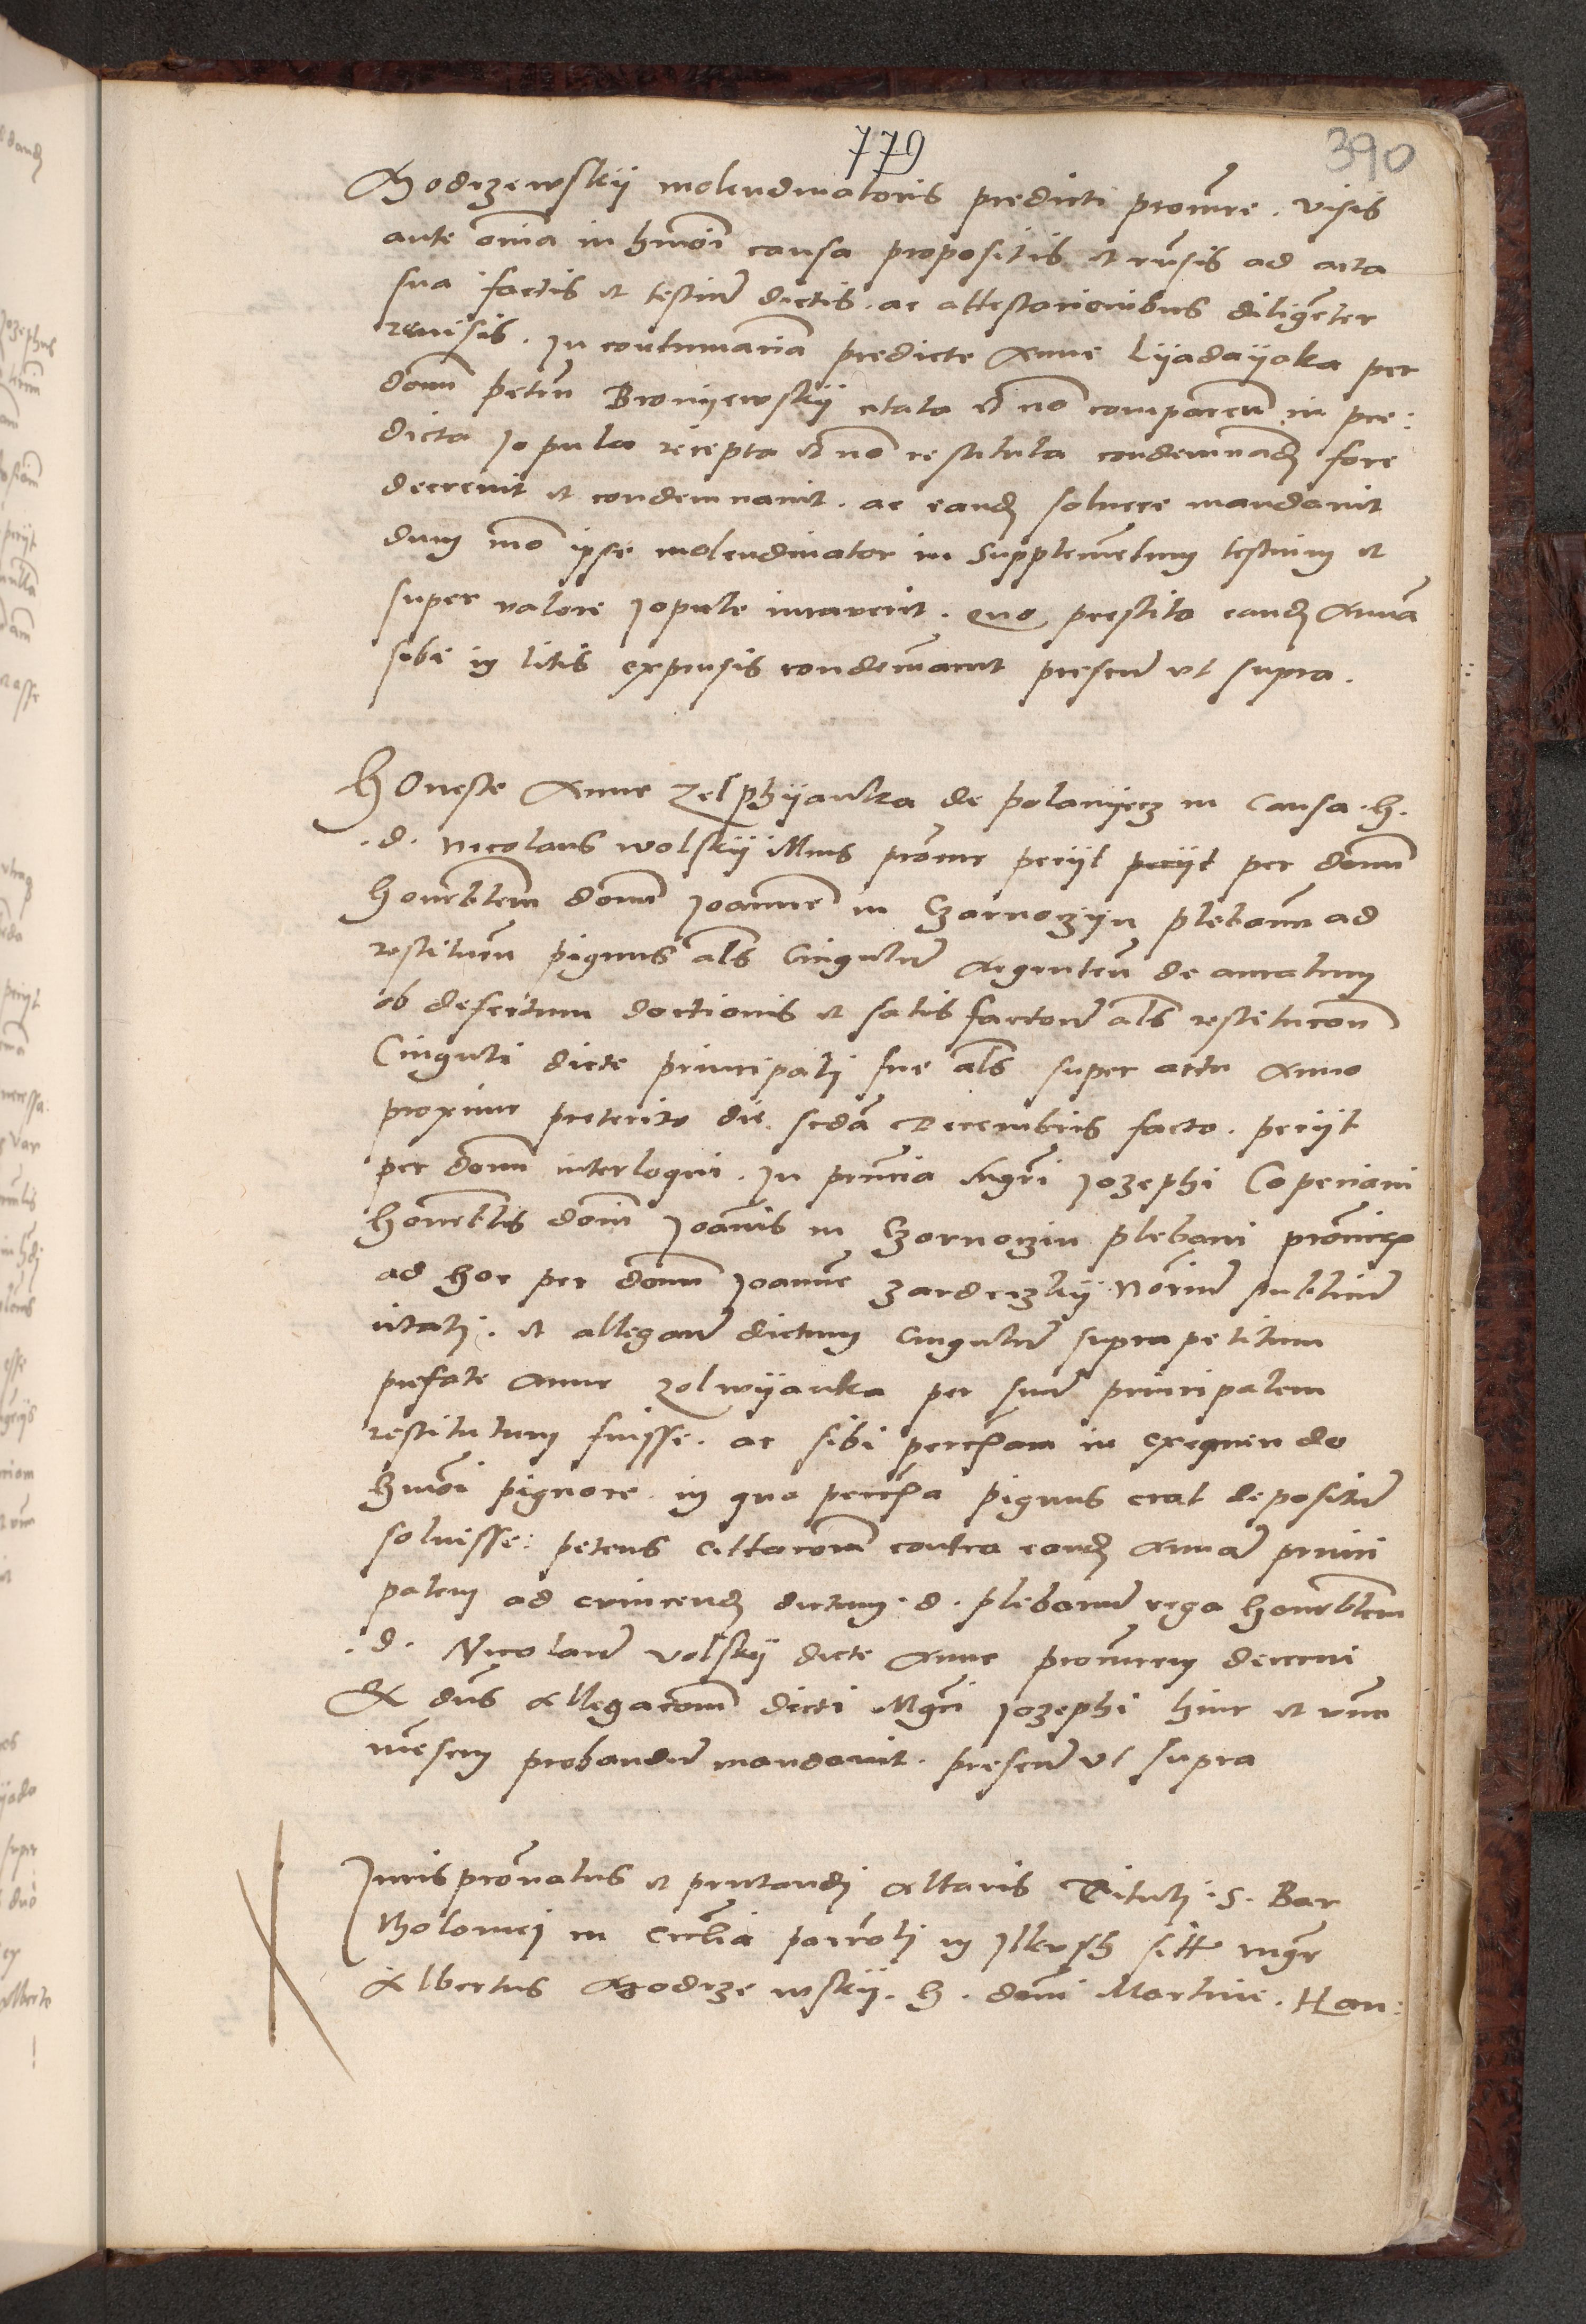 779
390
Modrzewskij molendinatoris predicti procure. visis
ante omnia in hmoi causa propositis et rursis ad acta
sua factis et testium dictis. ac attestationibus diligenter
reuisis. In contumaciam predicte Anne Lyadayoka per
domum petrum Bronyewskij citata et non comparen in pre:
dicta Jopula recepta et non restituta condemnand fore
decreuit et condemnauit. ac eand soluere mandauit
dum modo ipse molendinator in Supplementum testium et
super valore Jopule iurauerit. quo prestito eand Annam
sibi in litis expensis condemnauit presen ut supra.
Honeste Anne de polanijecz in Causa. h.
.d. Nicolaus wolskij illius procur petijt petijt per domum
honorabilem domum Joannem in Czarnoczijn plebanum ad
restituen pignus als Cingulum Argenteum de auratum
ob defectum doctionis et satis factionem als restitucom
Cinguli dicte principali sue als super actu Anno
proxime preterito die secda Decembris facto. petijt
per domum interloqui. In pruncia Mgri Jozephi
honorabilis domini Joannis in Czarnoczin plebani procuris
ad hoc per domum Joannem notarium publicum
citati. et allegauit dictum Cingulum supra petitum
prefate Anne Zolwijanka per suum principalem
restitutum fuisse. ac sibi in exequendo
hmoi pignore. in quo pignus erat depositum
soluisse: petens Cittacionem contra eand Annam princi
palem ad euincend dictum. d. plebanum erga honorabilem
.d. Nicolaum volskij dicte Anne procurem decerni
Et dnus Allegacionem dicti Mgri Jozephi hinc et unum
mensem probandum mandauit. presen ut supra
Juris pronatus et prutandi Altaris Tituli. S. Bar
tholomei in Ecclia in sitti mgr
Albertus Modrzewskij. h. domini Martini. Han: